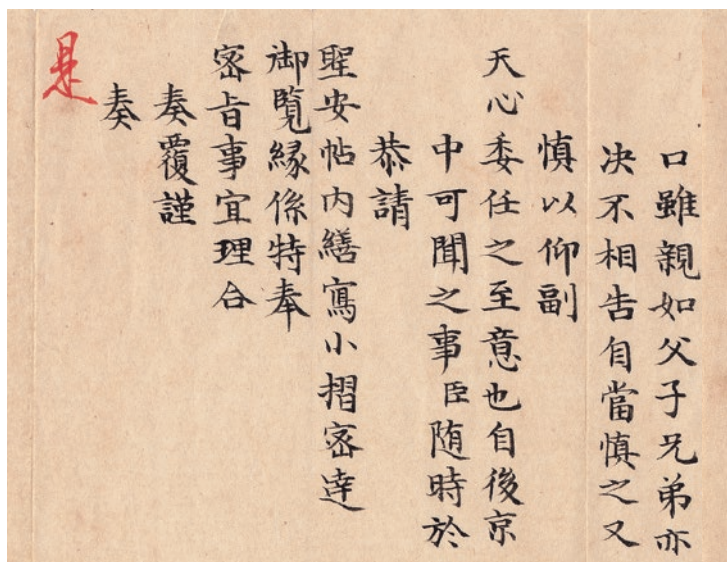 口雖親如父子兄弟亦
决不相告自當慎之又
慎以仰副
天心委任之至意也自後京
中可聞之事臣随時於
恭請
聖安帖内繕寫小摺密達
御覽緣係特奉
密旨事宜理合
奏覆謹
奏
是